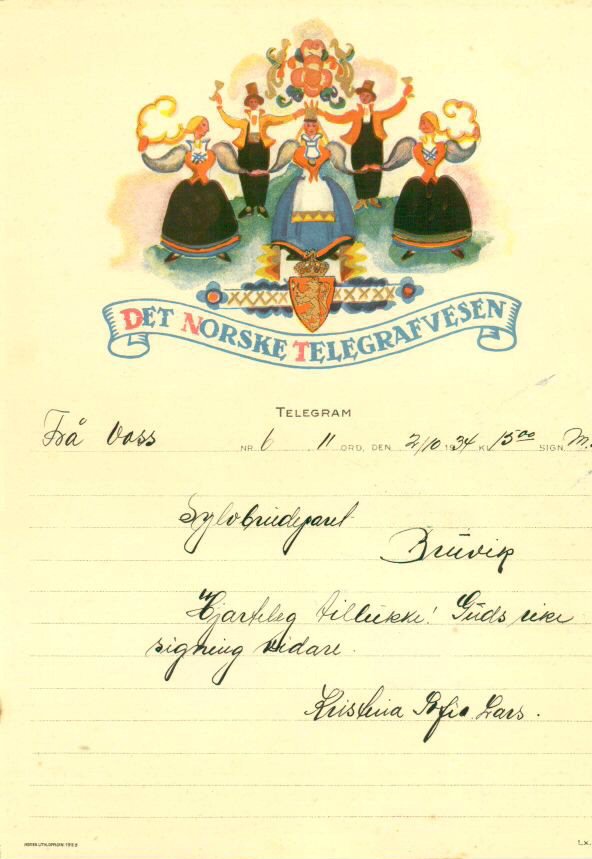 DET NORSKE TELEGRAFVESEN
TELEGRAM
Frå Voss NR. 6 11 ORD, DEN 2/10 1934 KL. 15 00 SIGN. M.
Sylvbrudeparet
Bruvik
Hjarteleg tillukke! Guds rike
signing vidare.
Kristina Sofie Lars.